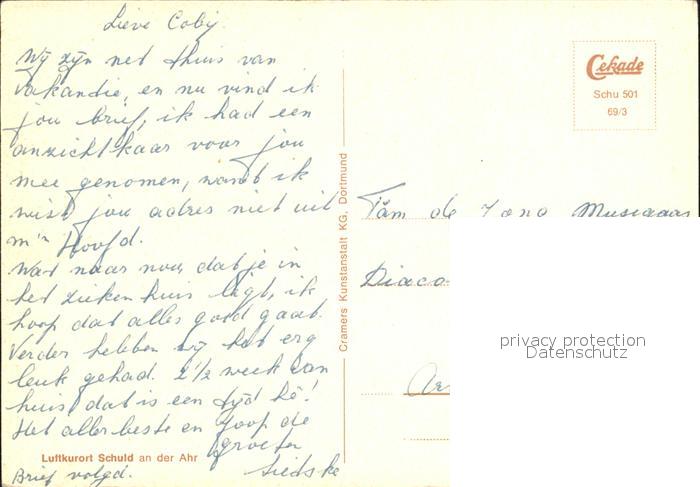 Lieve Coby
Wij zijn net thuis van
Vakandie, en nu vind ik
jou brief, ik had een
anzichtkaar voor jou
mee genomen, want ik
wist jou adres niet uit
m'n Hoofd.
Wat naar nou, dat je in
het zieken huis ligt, ik
hoop dat alles goed gaat.
Verder hebben wij het erg
leuk gehad. 2 1/2 week van
huis, dat is een tijd hè!
Het allerbeste en Joop de
groeten
Siedske
Brief volgd.
Luftkurort Schuld an der Ahr
Cramers Kunstanstalt KG. Dortmund
Cekade
Schu 501
69/3
Fam de Jong
Diaco
privacy protection
Datenschutz